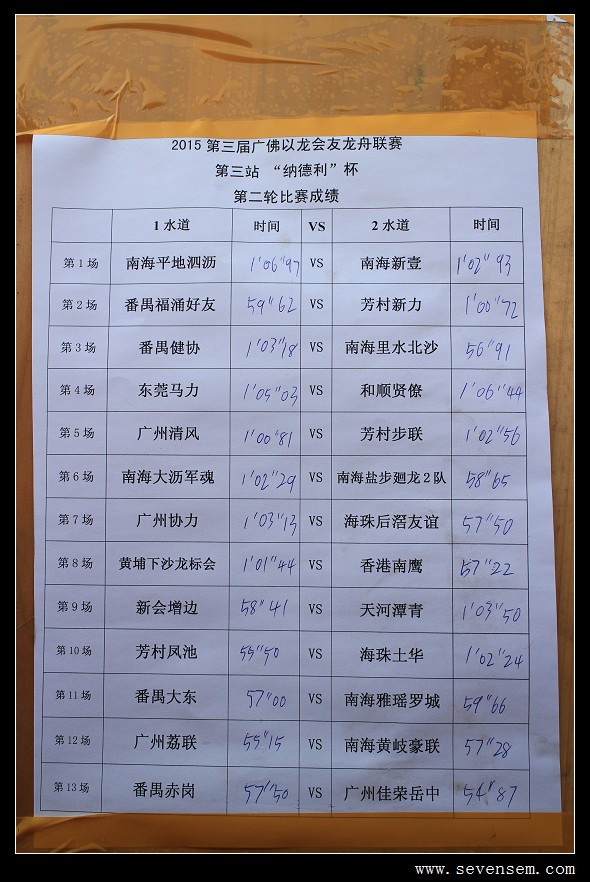 2015 第三届广佛以龙会友龙舟联赛
第三站 “纳德利”杯
第二轮比赛成绩
1水道 时间 VS 2水道 时间
第1场 南海平地泗沥 1'06"97 VS 南海新壹 1'02"93
第2场 番禺福涌好友 59"62 VS 芳村新力 1'00"72
第3场 番禺健协 1'03"18 VS 南海里水北沙 56"91
第4场 东莞马力 1'05"03 VS 和顺贤僚 1'06"44
第5场 广州清风 1'00"81 VS 芳村步联 1'02"56
第6场 南海大沥军魂 1'02"29 VS 南海盐步廻龙2队 58"65
第7场 广州协力 1'03"13 VS 海珠后滘友谊 57"50
第8场 黄埔下沙龙标会 1'01"44 VS 香港南鹰 57"22
第9场 新会增边 58"41 VS 天河潭青 1'03"50
第10场 芳村凤池 55"50 VS 海珠土华 1'02"24
第11场 番禺大东 57"00 VS 南海雅瑶罗城 59"66
第12场 广州荔联 55"15 VS 南海黄岐豪联 57"28
第13场 番禺赤岗 57"50 VS 广州佳荣岳中 54"87
www.sevensem.com